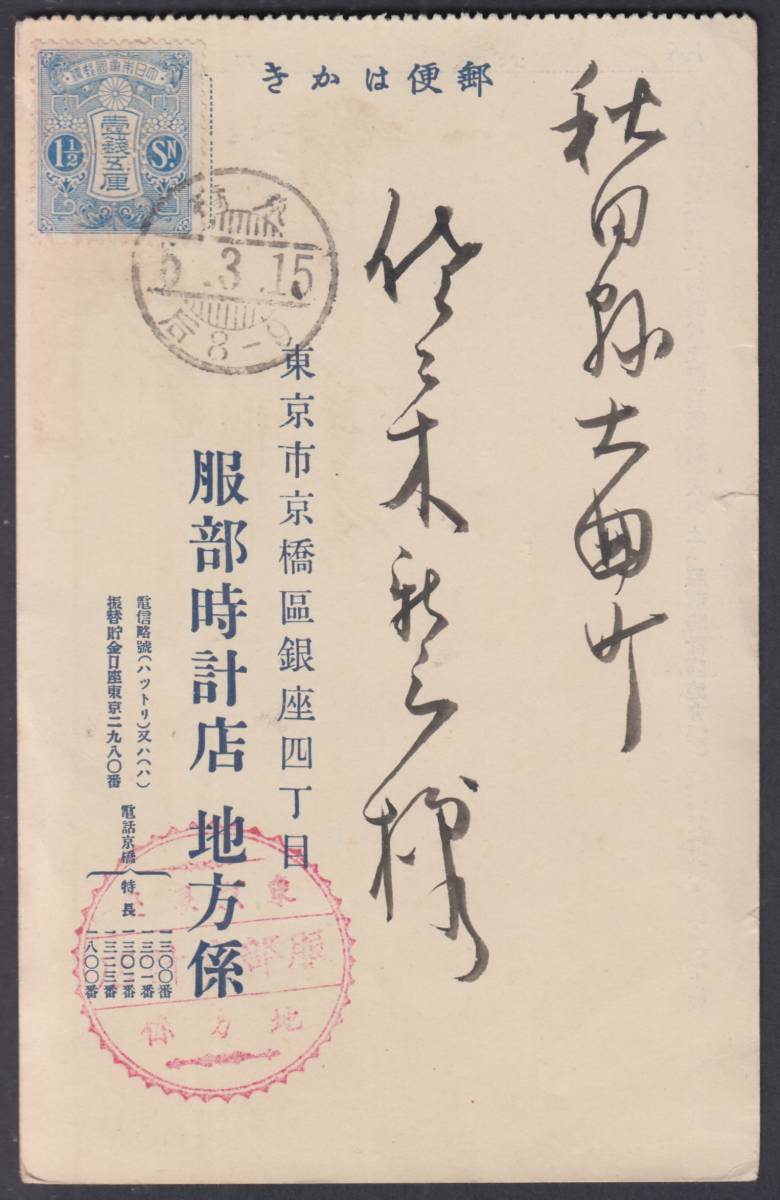 郵便はかき
大日本帝國郵便
壹錢五厘
1½
SN.
5.3.15
后 8-9
秋田縣大曲町
佐々木新之様
東京市京橋區銀座四丁目
服部時計店 地方係
電信略號(ハツトリ)又ハ(ハ)
振替貯金口座東京二九八〇番
電話京橋 特長
一三〇〇番
一三〇一番
一三〇二番
一三二三番
一八〇〇番
東京銀座
服部
地方係